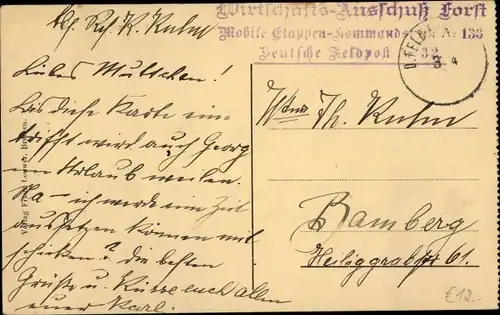 Abs. Rff. K. Kuhn
Wirtschafts-Ausschuß Forst
Mobile Etappen-Kommandantur Nr. 133
Deutsche Feldpost 32
Liebes Muttchen!
bis diese Karte ein-
trifft wird auch Georg
im Urlaub weilen.
Na - ich werde ein Zeit
aussetzen können mit
schicken? die besten
Grüße u. Küsse euch allen
euer Karl.
Wtwe Th. Kuhn
Bamberg
Heiliggrabstr 61.
£12.-